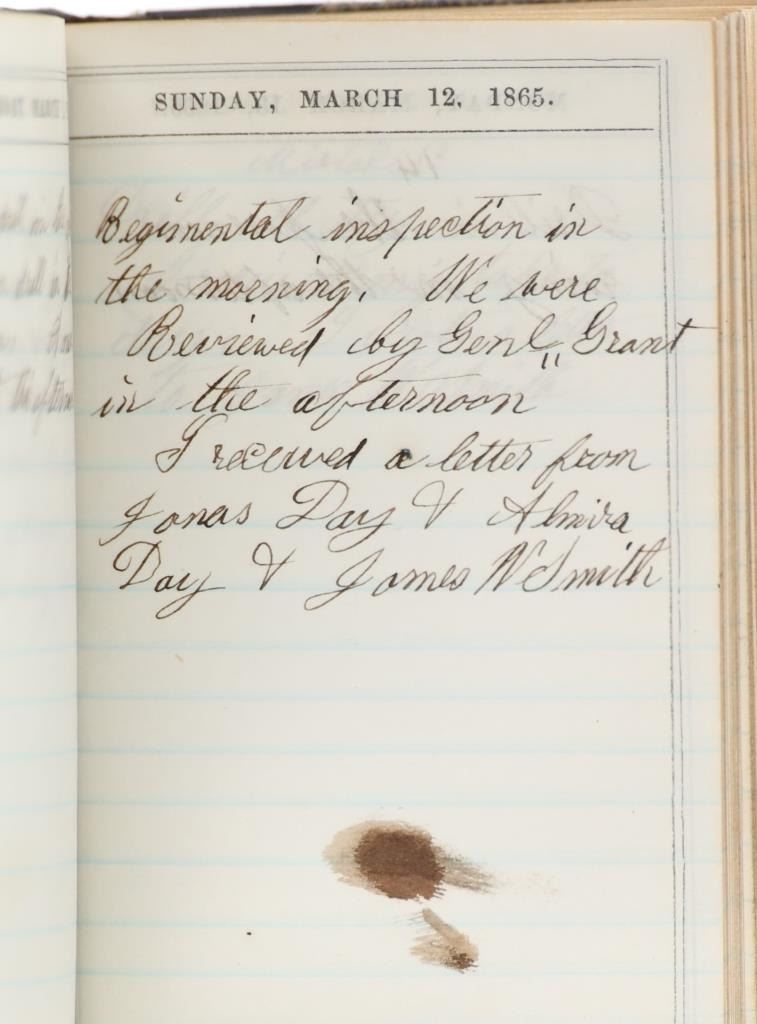 SUNDAY, MARCH 12, 1865.
Regimental inspection in
the morning. We were
Reviewed by Genl,, Grant
in the afternoon
I received a letter from
Jonas Day & Almira
Day & James W Smith